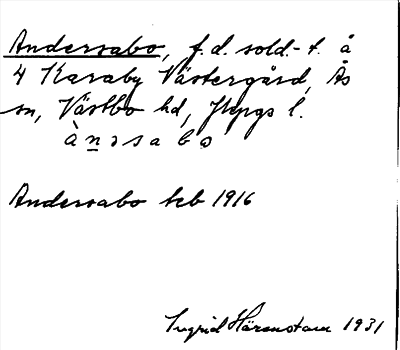 Andersabo, f.d. sold.-t. å
4 Karaby Västergård, Ås
sn, Västbo hd, Jkpgs l.
àn̲ɔsabo
Anderssabo kcb 1916
Ingrid Härenstam 1931